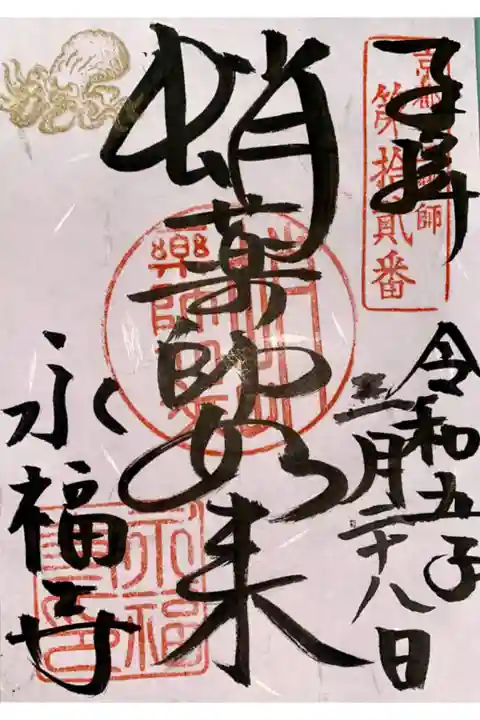 奉拝
京都 師
第拾貳番
令和五年
三月二十八日
蛸薬師如来
永福寺